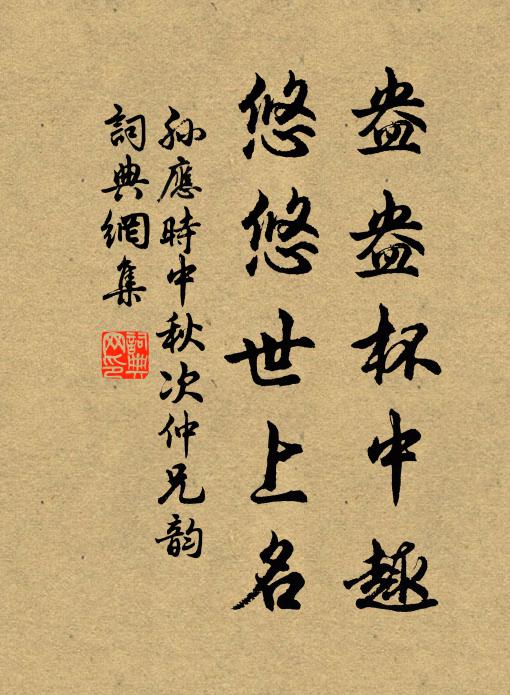 盎盎杯中趣
悠悠世上名
孫應時中秋次仲兄韵
詞典網集
詞典网印